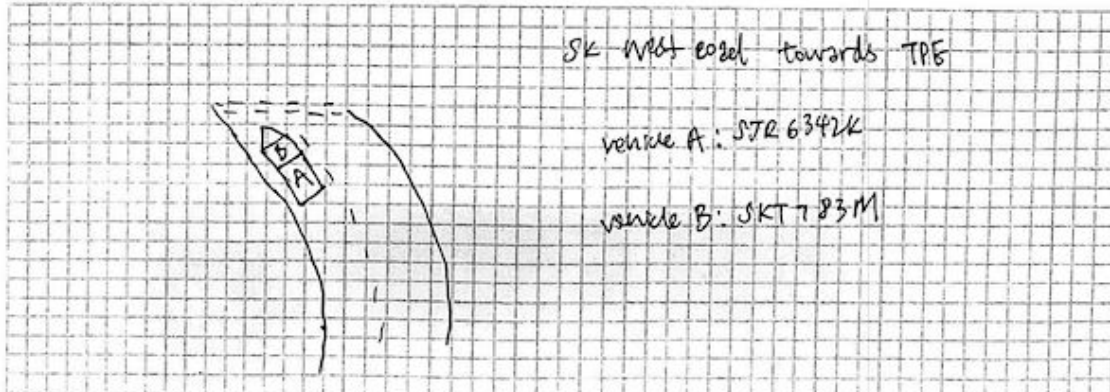 SK West road towards TPE
vehicle A: SJR 6342K
vehicle B: SKT 783M
B
A